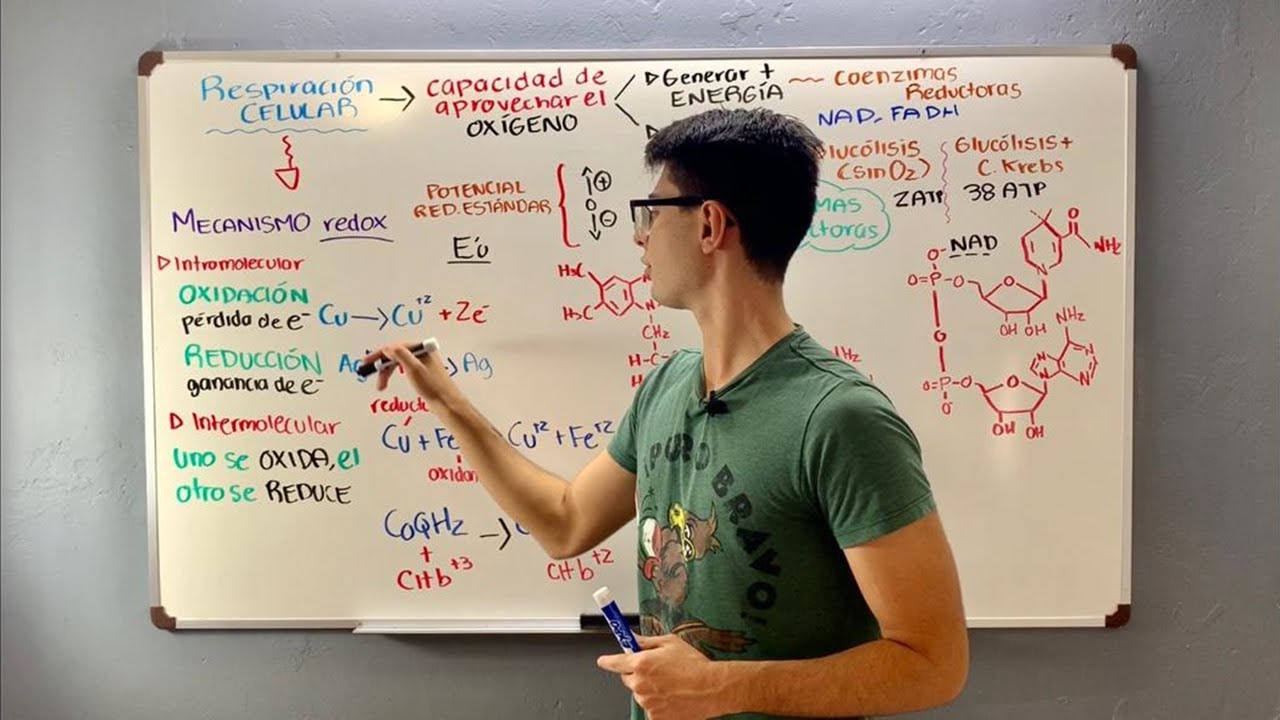 Respiración
CELULAR
→ capacidad de
aprovechar el
OXÍGENO
▷ Generar +
ENERGÍA
~ Coenzimas
Reductoras
NAD, FADH
Glucólisis
(sin O2)
2ATP
Glucólisis +
C. Krebs
38 ATP
MECANISMO redox
POTENCIAL
RED. ESTÁNDAR
↑⊕
0
↓⊖
E'o
▷ Intramolecular
OXIDACIÓN
pérdida de e-
Cu → Cu+2 + 2e-
REDUCCIÓN
ganancia de e-
→ Ag
▷ Intermolecular
Uno se OXIDA, el
otro se REDUCE
Cu + Fe
Cu+2 + Fe+2
CoQH2 →
+
Citb+3
Citb+2
H3C
H3C
N
N
CH2
H-C-
NAD
O-
O=P-O
O
O=P-O
O-
O
NH2
N
O
OH OH
NH2
N
N
N
N
O
OH OH
¡PURO
BRAVO!